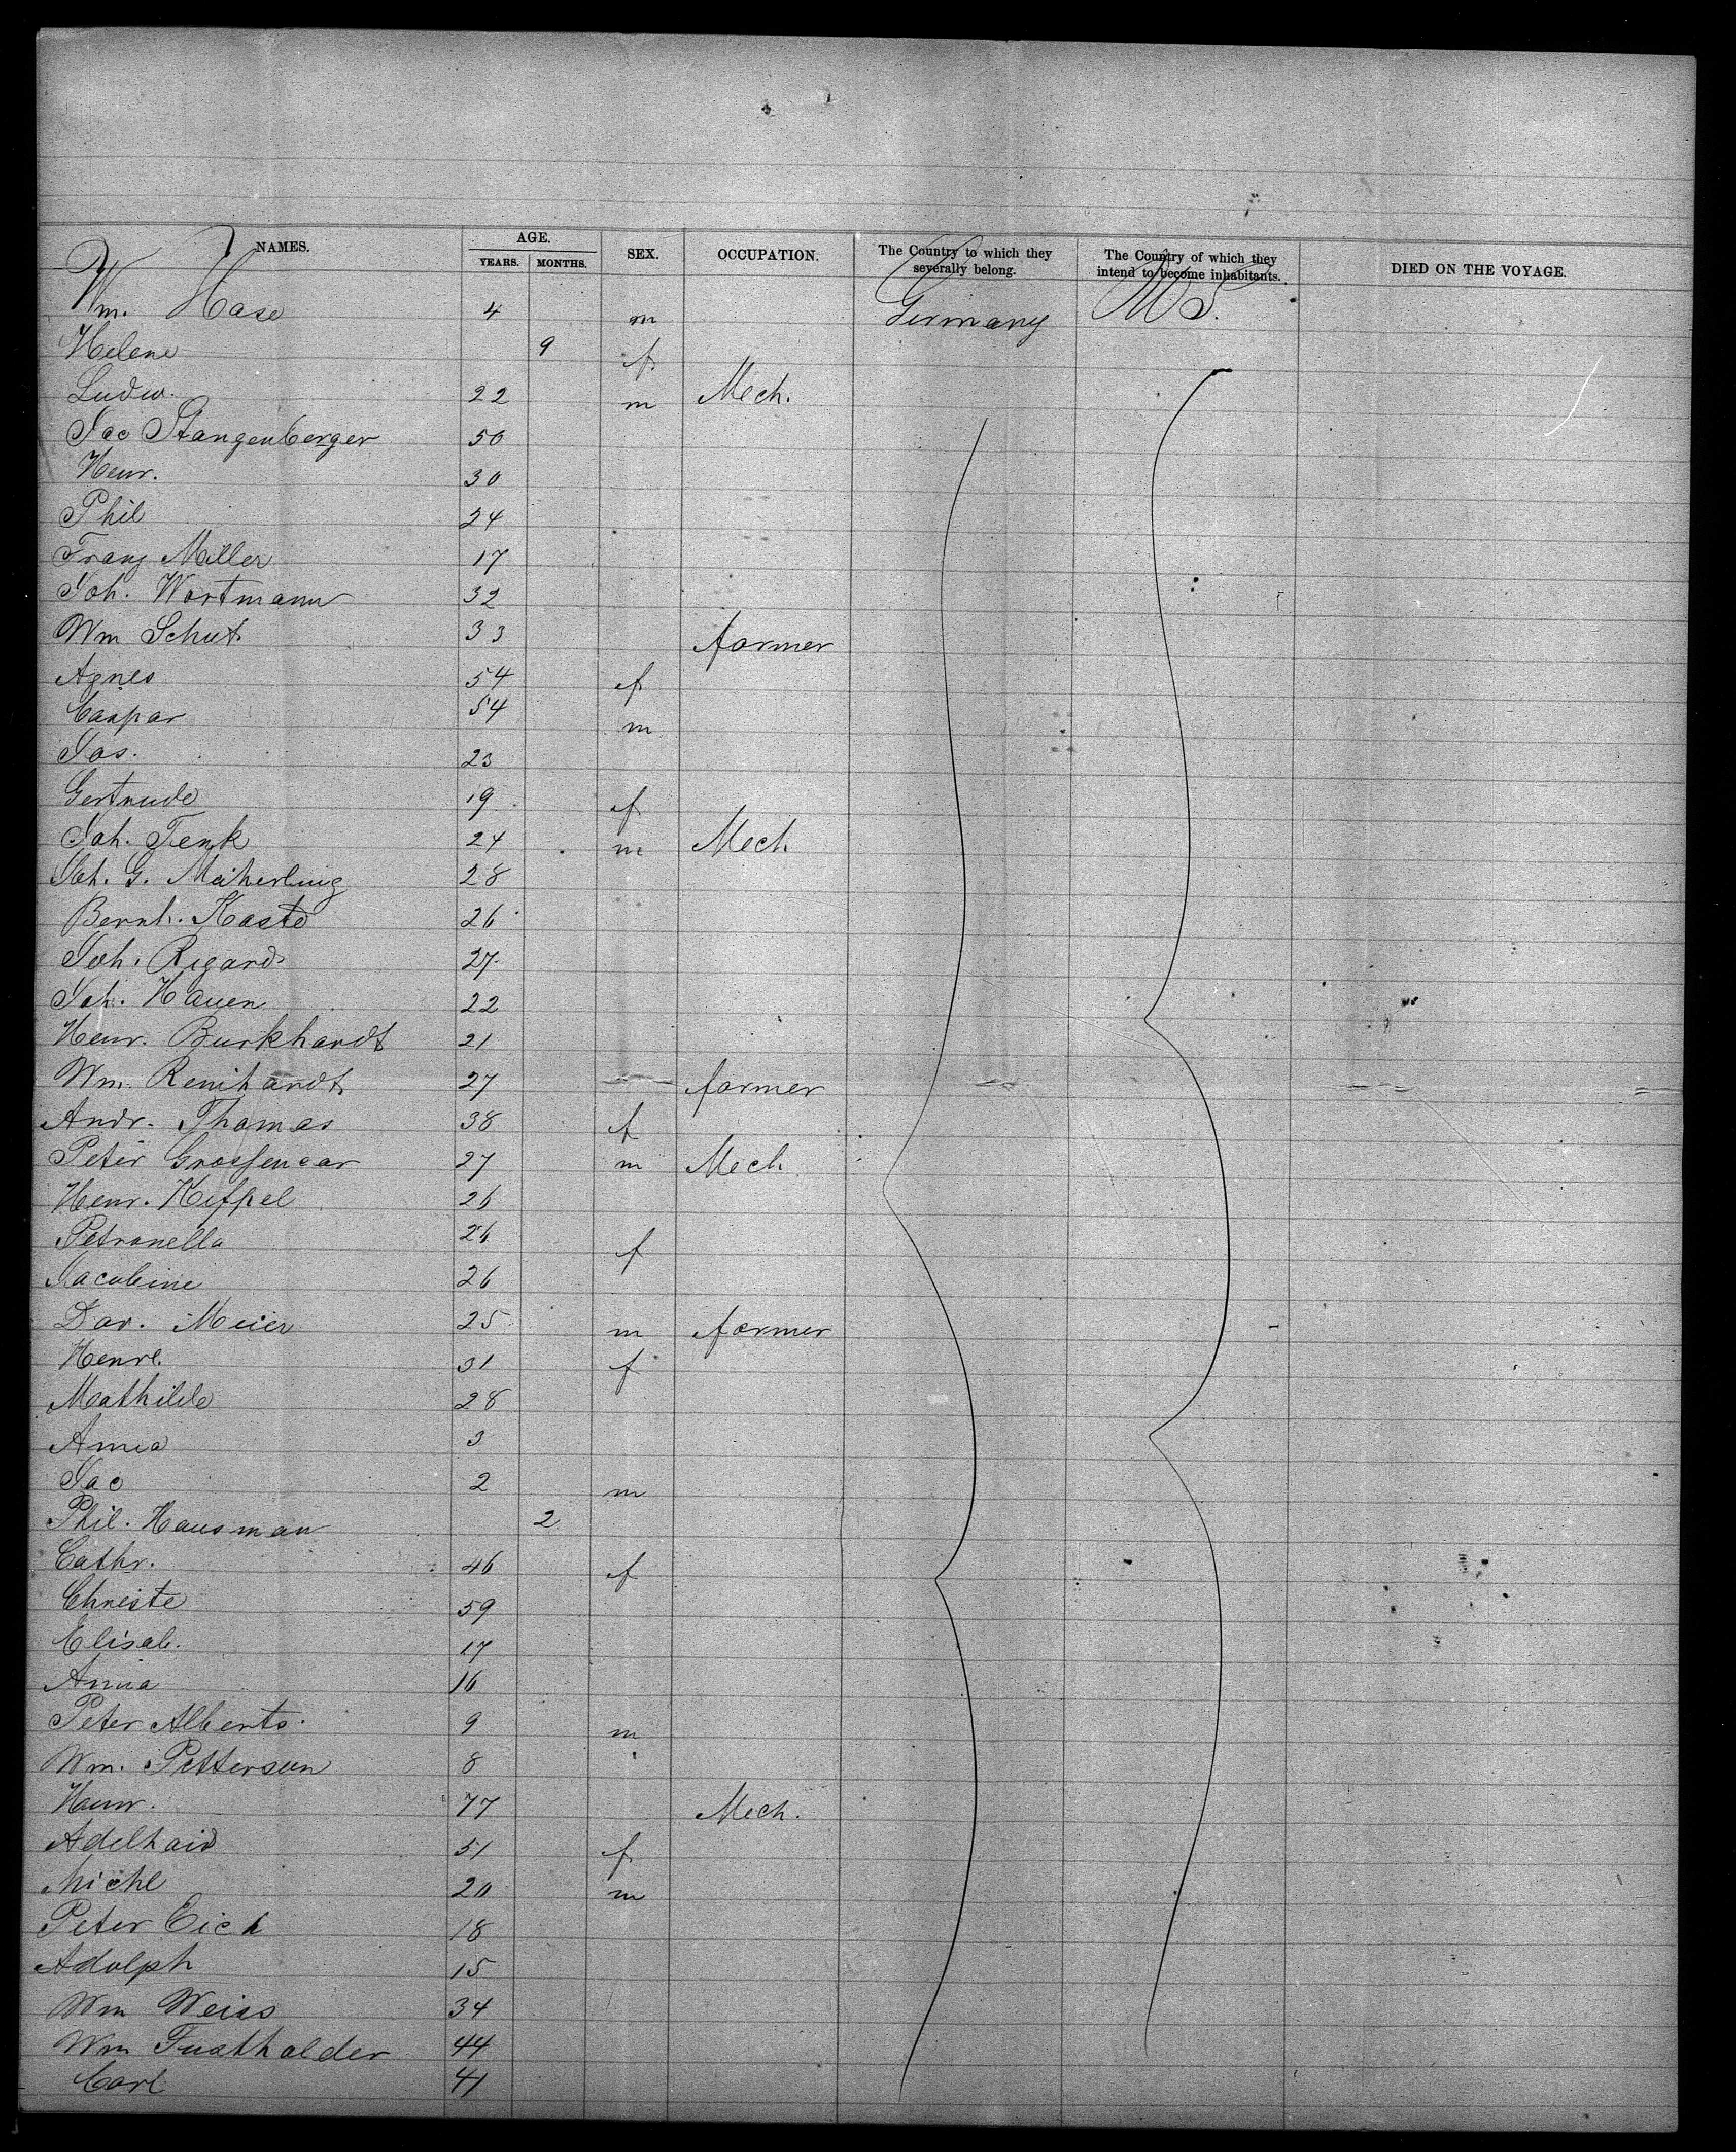 NAMES. AGE. SEX. OCCUPATION. The Country to which they severally belong. The Country of which they intend to become inhabitants. DIED ON THE VOYAGE.
YEARS. MONTHS.
Wm. Hase 4 m Germany U S.
Helene 9 f
Ludw. 22 m Mech.
Jac Stangenberger 50
Henr. 30
Phil 24
Franz Miller 17
Joh. Wortmann 32
Wm Schut 33 farmer
Agnes 54 f
Caspar 54 m
Jos. 23
Gertrude 19 f
Joh. Tenk 24 m Mech.
Joh. G. 28
Bernh. Kaste 26
Joh. Rigard 27
Joh. Hauen 22
Henr. Burkhardt 21
Wm. Reinhardt 27 farmer
Andr. Thomas 38 f
Peter 27 m Mech.
Henr. Keppel 26
Petronella 26 f
Jacobine 26
Dav. Meier 25 m farmer
Henre. 31 f
Mathilde 28
Anna 3
Jac 2 m
Phil. Hausman 2
Cathr. 46 f
Christe 59
Elisab. 17
Anna 16
Peter Alberts. 9 m
Wm. Pettersen 8
Henr. 77 Mech.
Adelhaid 51 f
Michl 20 m
Peter Eich 18
Adolph 15
Wm Weiss 34
Wm 44
Carl 41